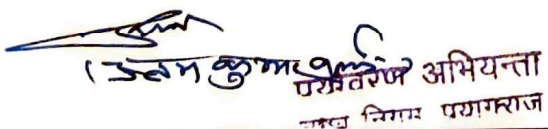 (उत्तम कुमार वर्मा)
पर्यावरण अभियन्ता
नगर निगम प्रयागराज